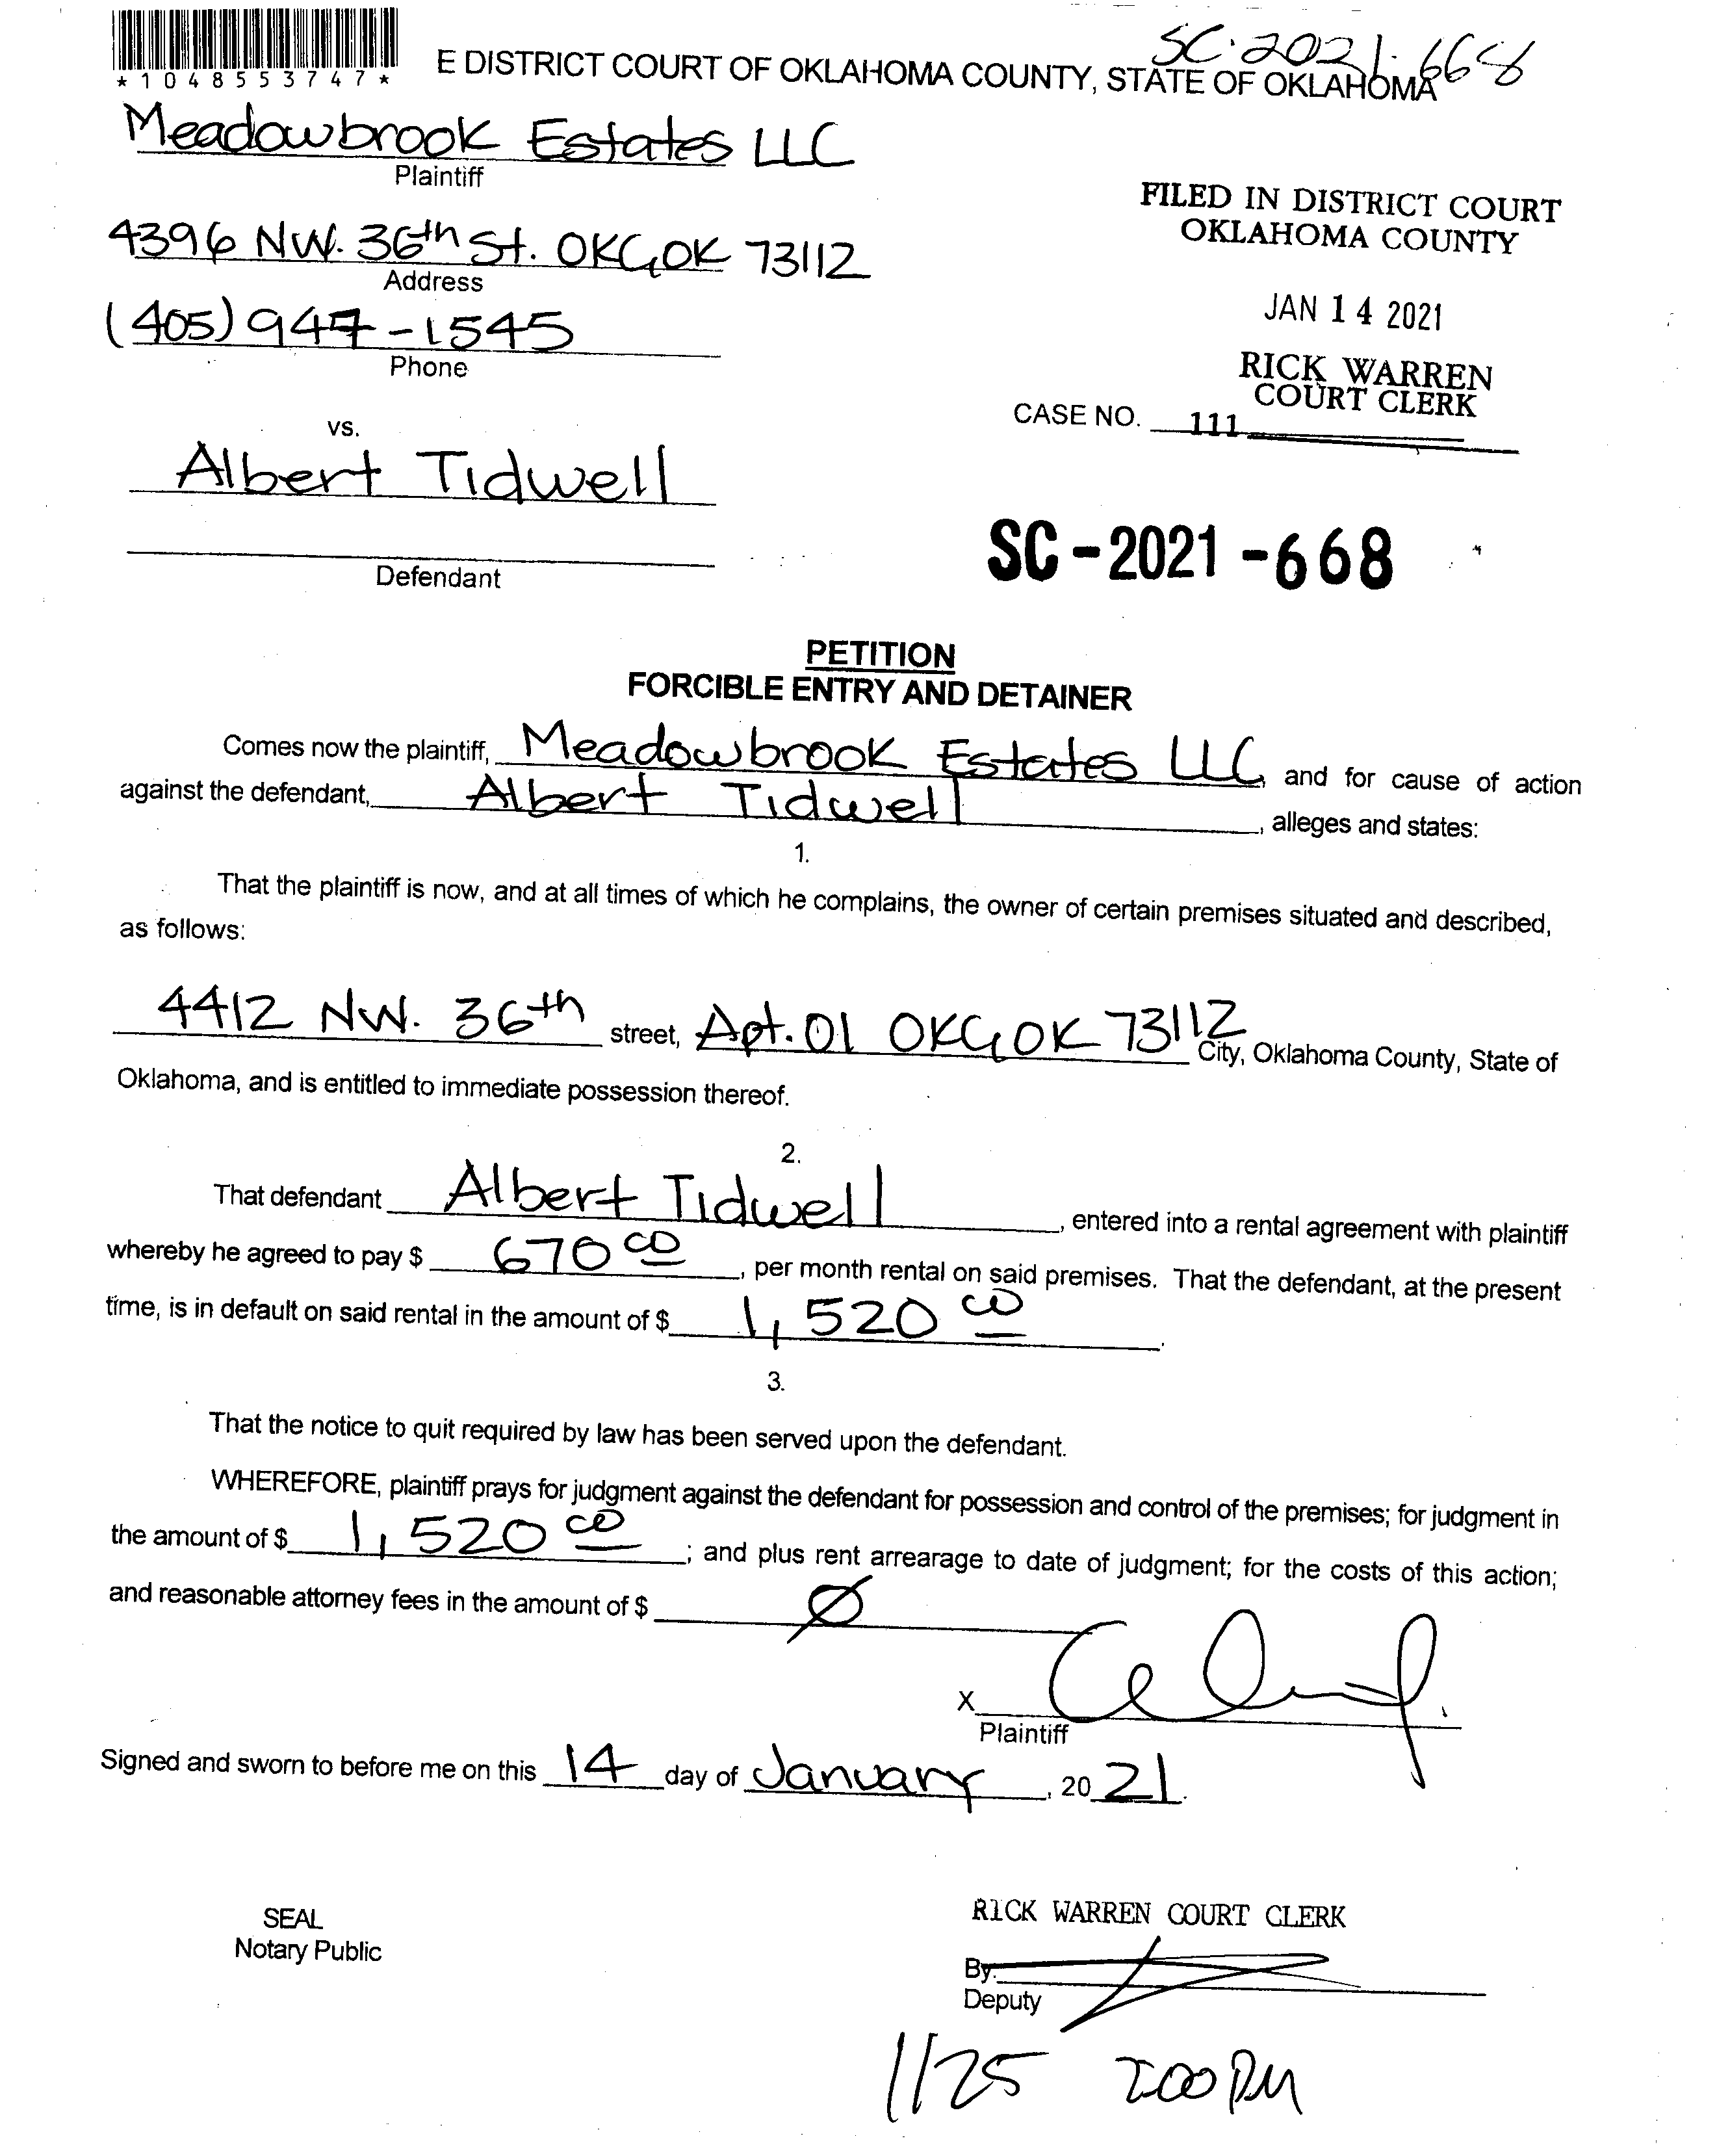 *1048553747*
SC-2021-668
E DISTRICT COURT OF OKLAHOMA COUNTY, STATE OF OKLAHOMA
Meadowbrook Estates LLC
Plaintiff
FILED IN DISTRICT COURT
OKLAHOMA COUNTY
4396 NW. 36th St. OKC, OK 73112
Address
JAN 14 2021
(405) 947-1545
Phone
RICK WARREN
COURT CLERK
CASE NO. 111
vs.
Albert Tidwell
Defendant
SC-2021-668
PETITION
FORCIBLE ENTRY AND DETAINER
Comes now the plaintiff, Meadowbrook Estates LLC, and for cause of action
against the defendant, Albert Tidwell, alleges and states:
1.
That the plaintiff is now, and at all times of which he complains, the owner of certain premises situated and described,
as follows:
4412 NW. 36th street, Apt. 01 OKC, OK 73112 City, Oklahoma County, State of
Oklahoma, and is entitled to immediate possession thereof.
2.
That defendant Albert Tidwell, entered into a rental agreement with plaintiff
whereby he agreed to pay $ 670 00, per month rental on said premises. That the defendant, at the present
time, is in default on said rental in the amount of $ 1,520 00.
3.
That the notice to quit required by law has been served upon the defendant.
WHEREFORE, plaintiff prays for judgment against the defendant for possession and control of the premises; for judgment in
the amount of $ 1,520 00; and plus rent arrearage to date of judgment; for the costs of this action;
and reasonable attorney fees in the amount of $ Ø
X
Plaintiff
Signed and sworn to before me on this 14 day of January, 20 21.
SEAL
Notary Public
RICK WARREN COURT CLERK
By:
Deputy
1/25 2:00 PM